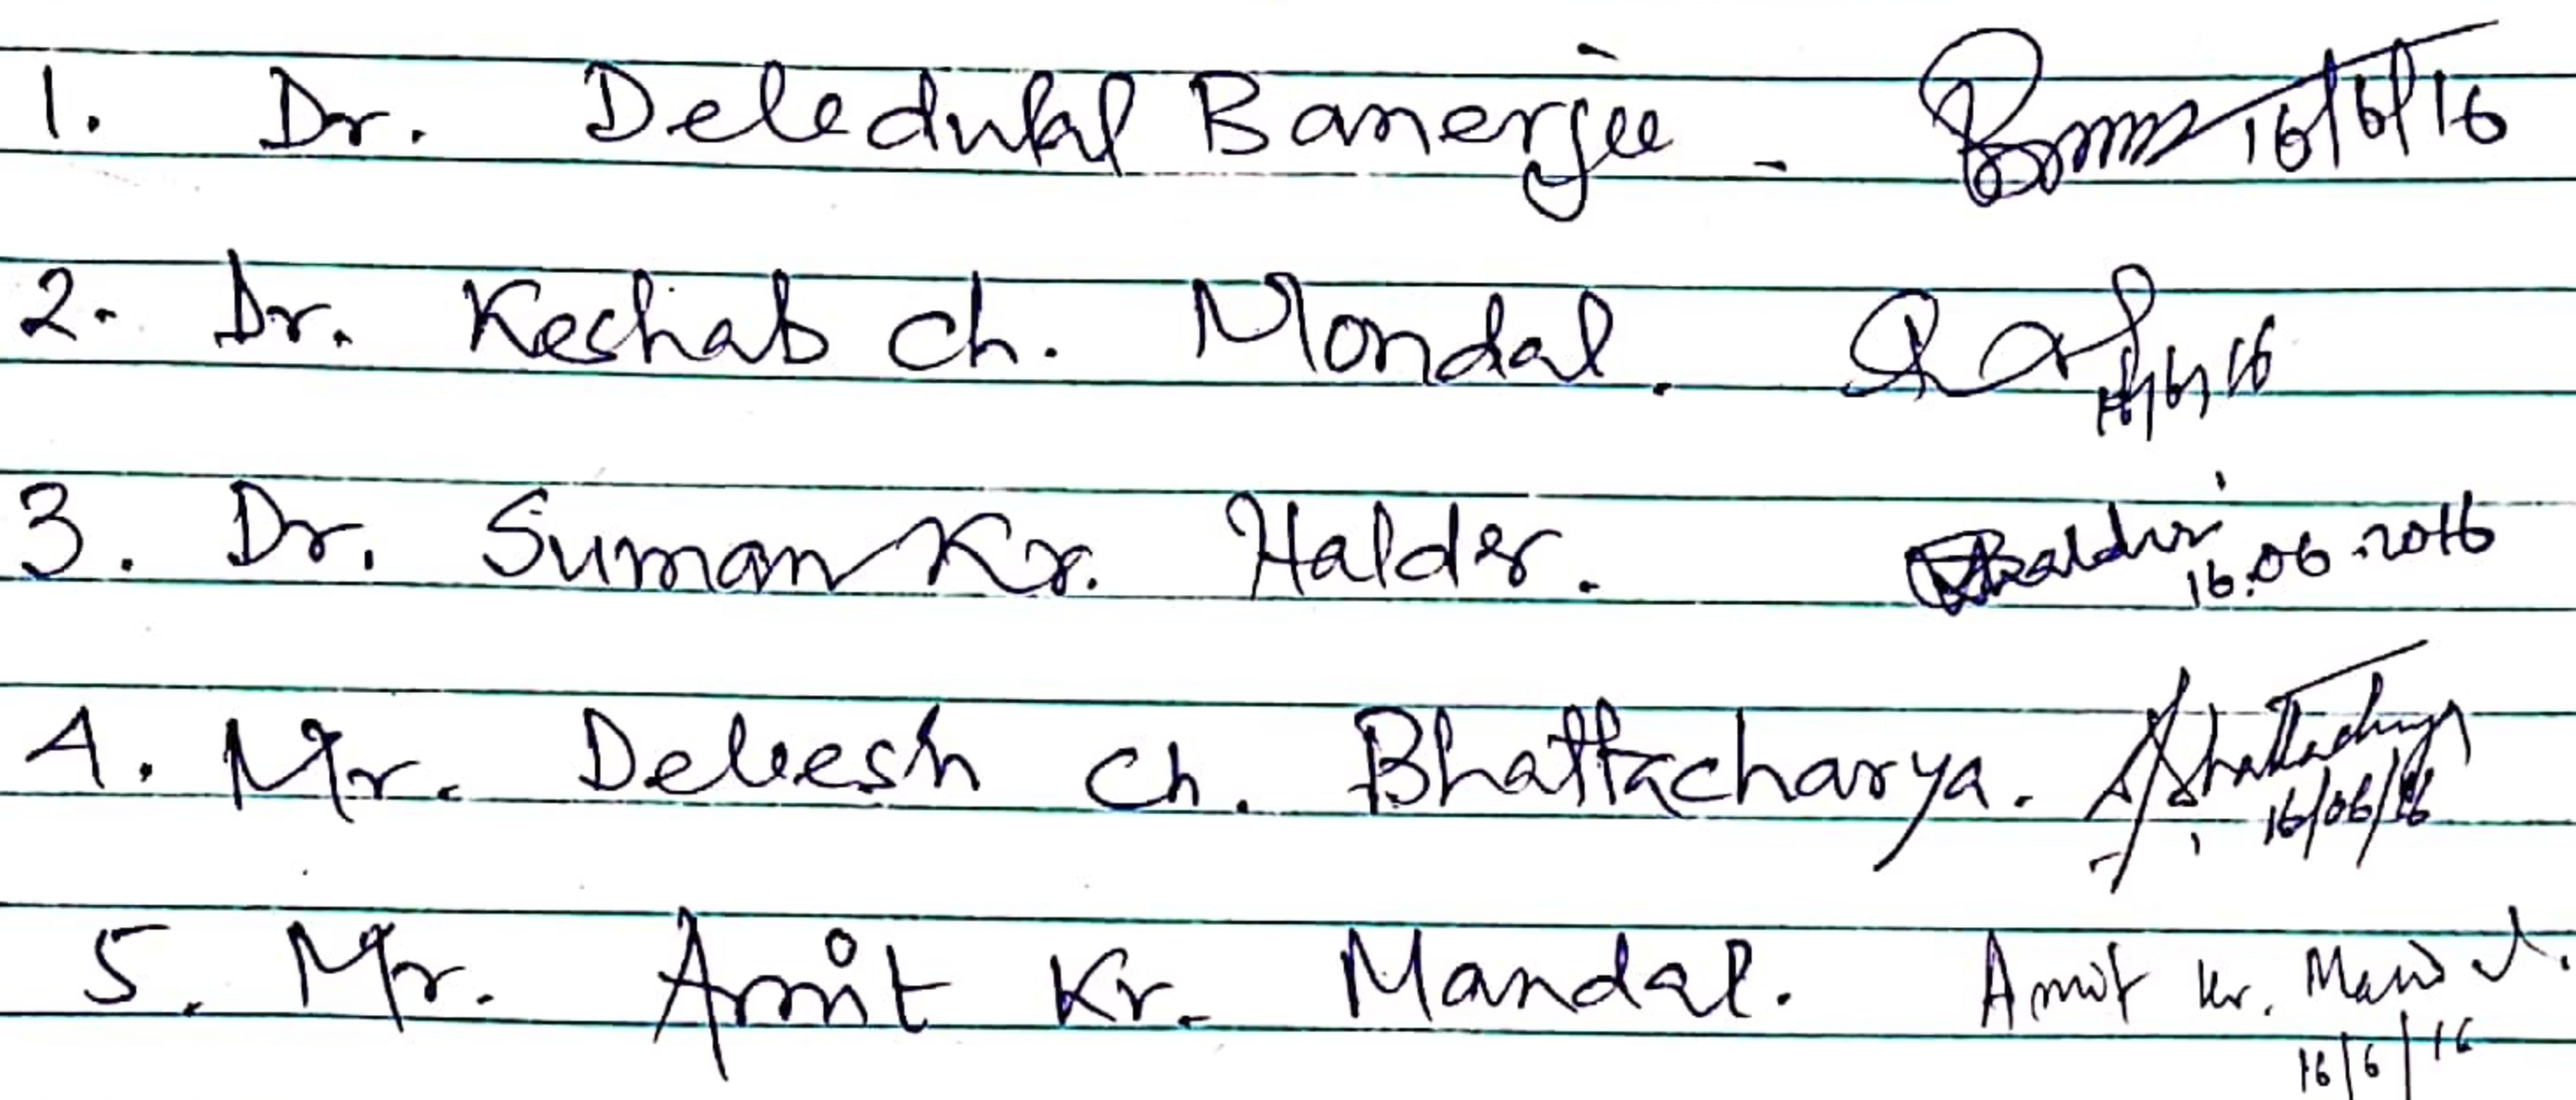 1. Dr. Debedulal Banerjee - 16/6/16
2. Dr. Keshab Ch. Mondal. 16/6/16
3. Dr. Suman Kr. Halder. Halder 16.06.2016
4. Mr. Debesh Ch. Bhattacharya. Bhattacharya 16/06/16
5. Mr. Amit Kr. Mandal. Amit Kr. Mandal.
16/6/16